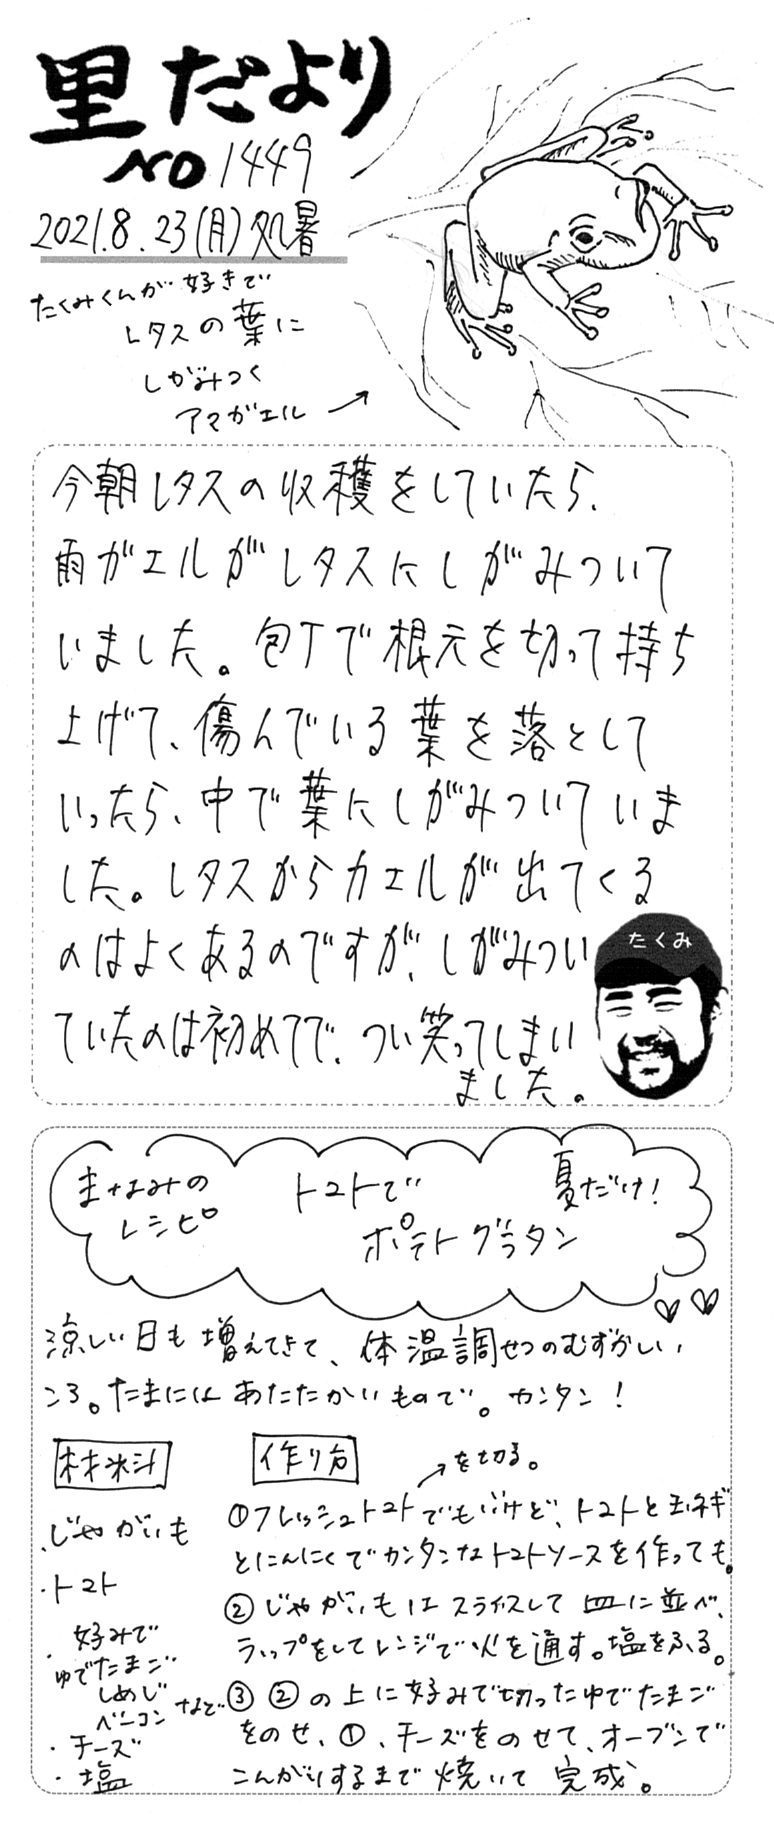 里だより
NO 1449
2021.8.23(月)処暑
たくみくんが好きで
レタスの葉に
しがみつく
アマガエル →
今朝レタスの収穫をしていたら、
雨ガエルがレタスにしがみついて
いました。包丁で根元を切って持ち
上げて、傷んでいる葉を落として
いったら、中で葉にしがみついていま
した。レタスからカエルが出てくる
のはよくあるのですが、しがみつい
ていたのは初めてで、つい笑ってしまい
ました。
たくみ
まなみの
レシピ
トマトで
ポテトグラタン
夏だけ!
涼しい日も増えてきて、体温調せつのむずかしい
ころ。たまにはあたたかいもので。カンタン!
材料
・じゃがいも
・トマト
・好みで
ゆでたまご
しめじ
ベーコン など
・チーズ
・塩
作り方
→を切る。
①フレッシュトマトでもいけど、トマトと玉ネギ
とにんにくでカンタンなトマトソースを作っても。
②じゃがいもはスライスして皿に並べ、
ラップをしてレンジで火を通す。塩をふる。
③②の上に好みで切ったゆでたまご
をのせ、①、チーズをのせて、オーブンで
こんがりするまで焼いて完成。